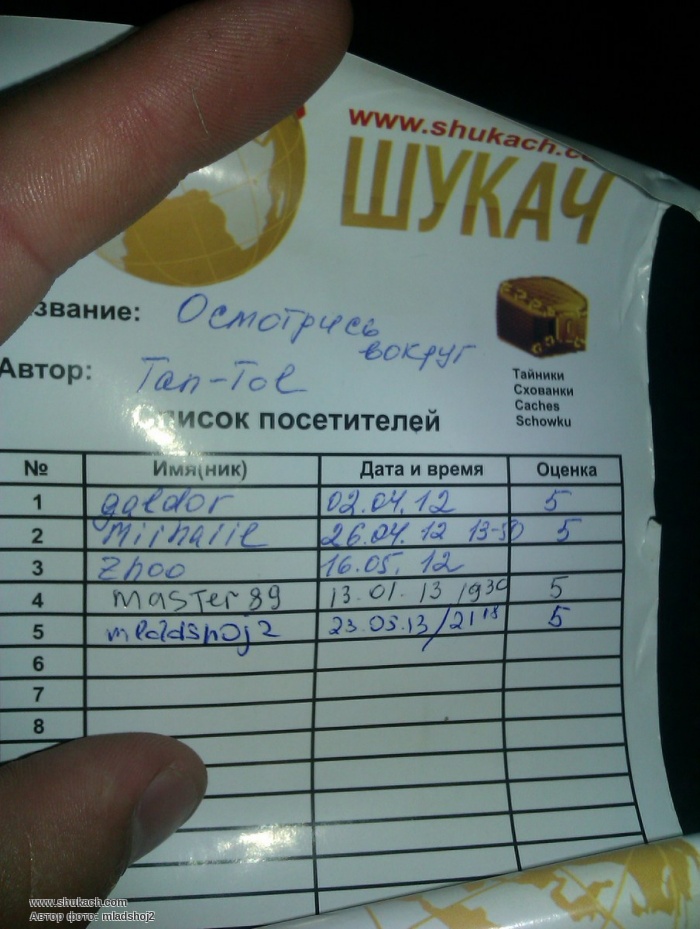 www.shukach.co
ШУКАЧ
звание: Осмотрись
вокруг
Автор: Tan-Tol
Тайники
Схованки
Caches
Schowku
Список посетителей
№ Имя(ник) Дата и время Оценка
1 galdor 02.04.12 5
2 miihailE 26.04.12 13-50 5
3 zhoo 16.05.12
4 master89 13.01.13 1930 5
5 mladshoj2 23.05.13/2118 5
6
7
8
www.shukach.com
Автор фото: mladshoj2